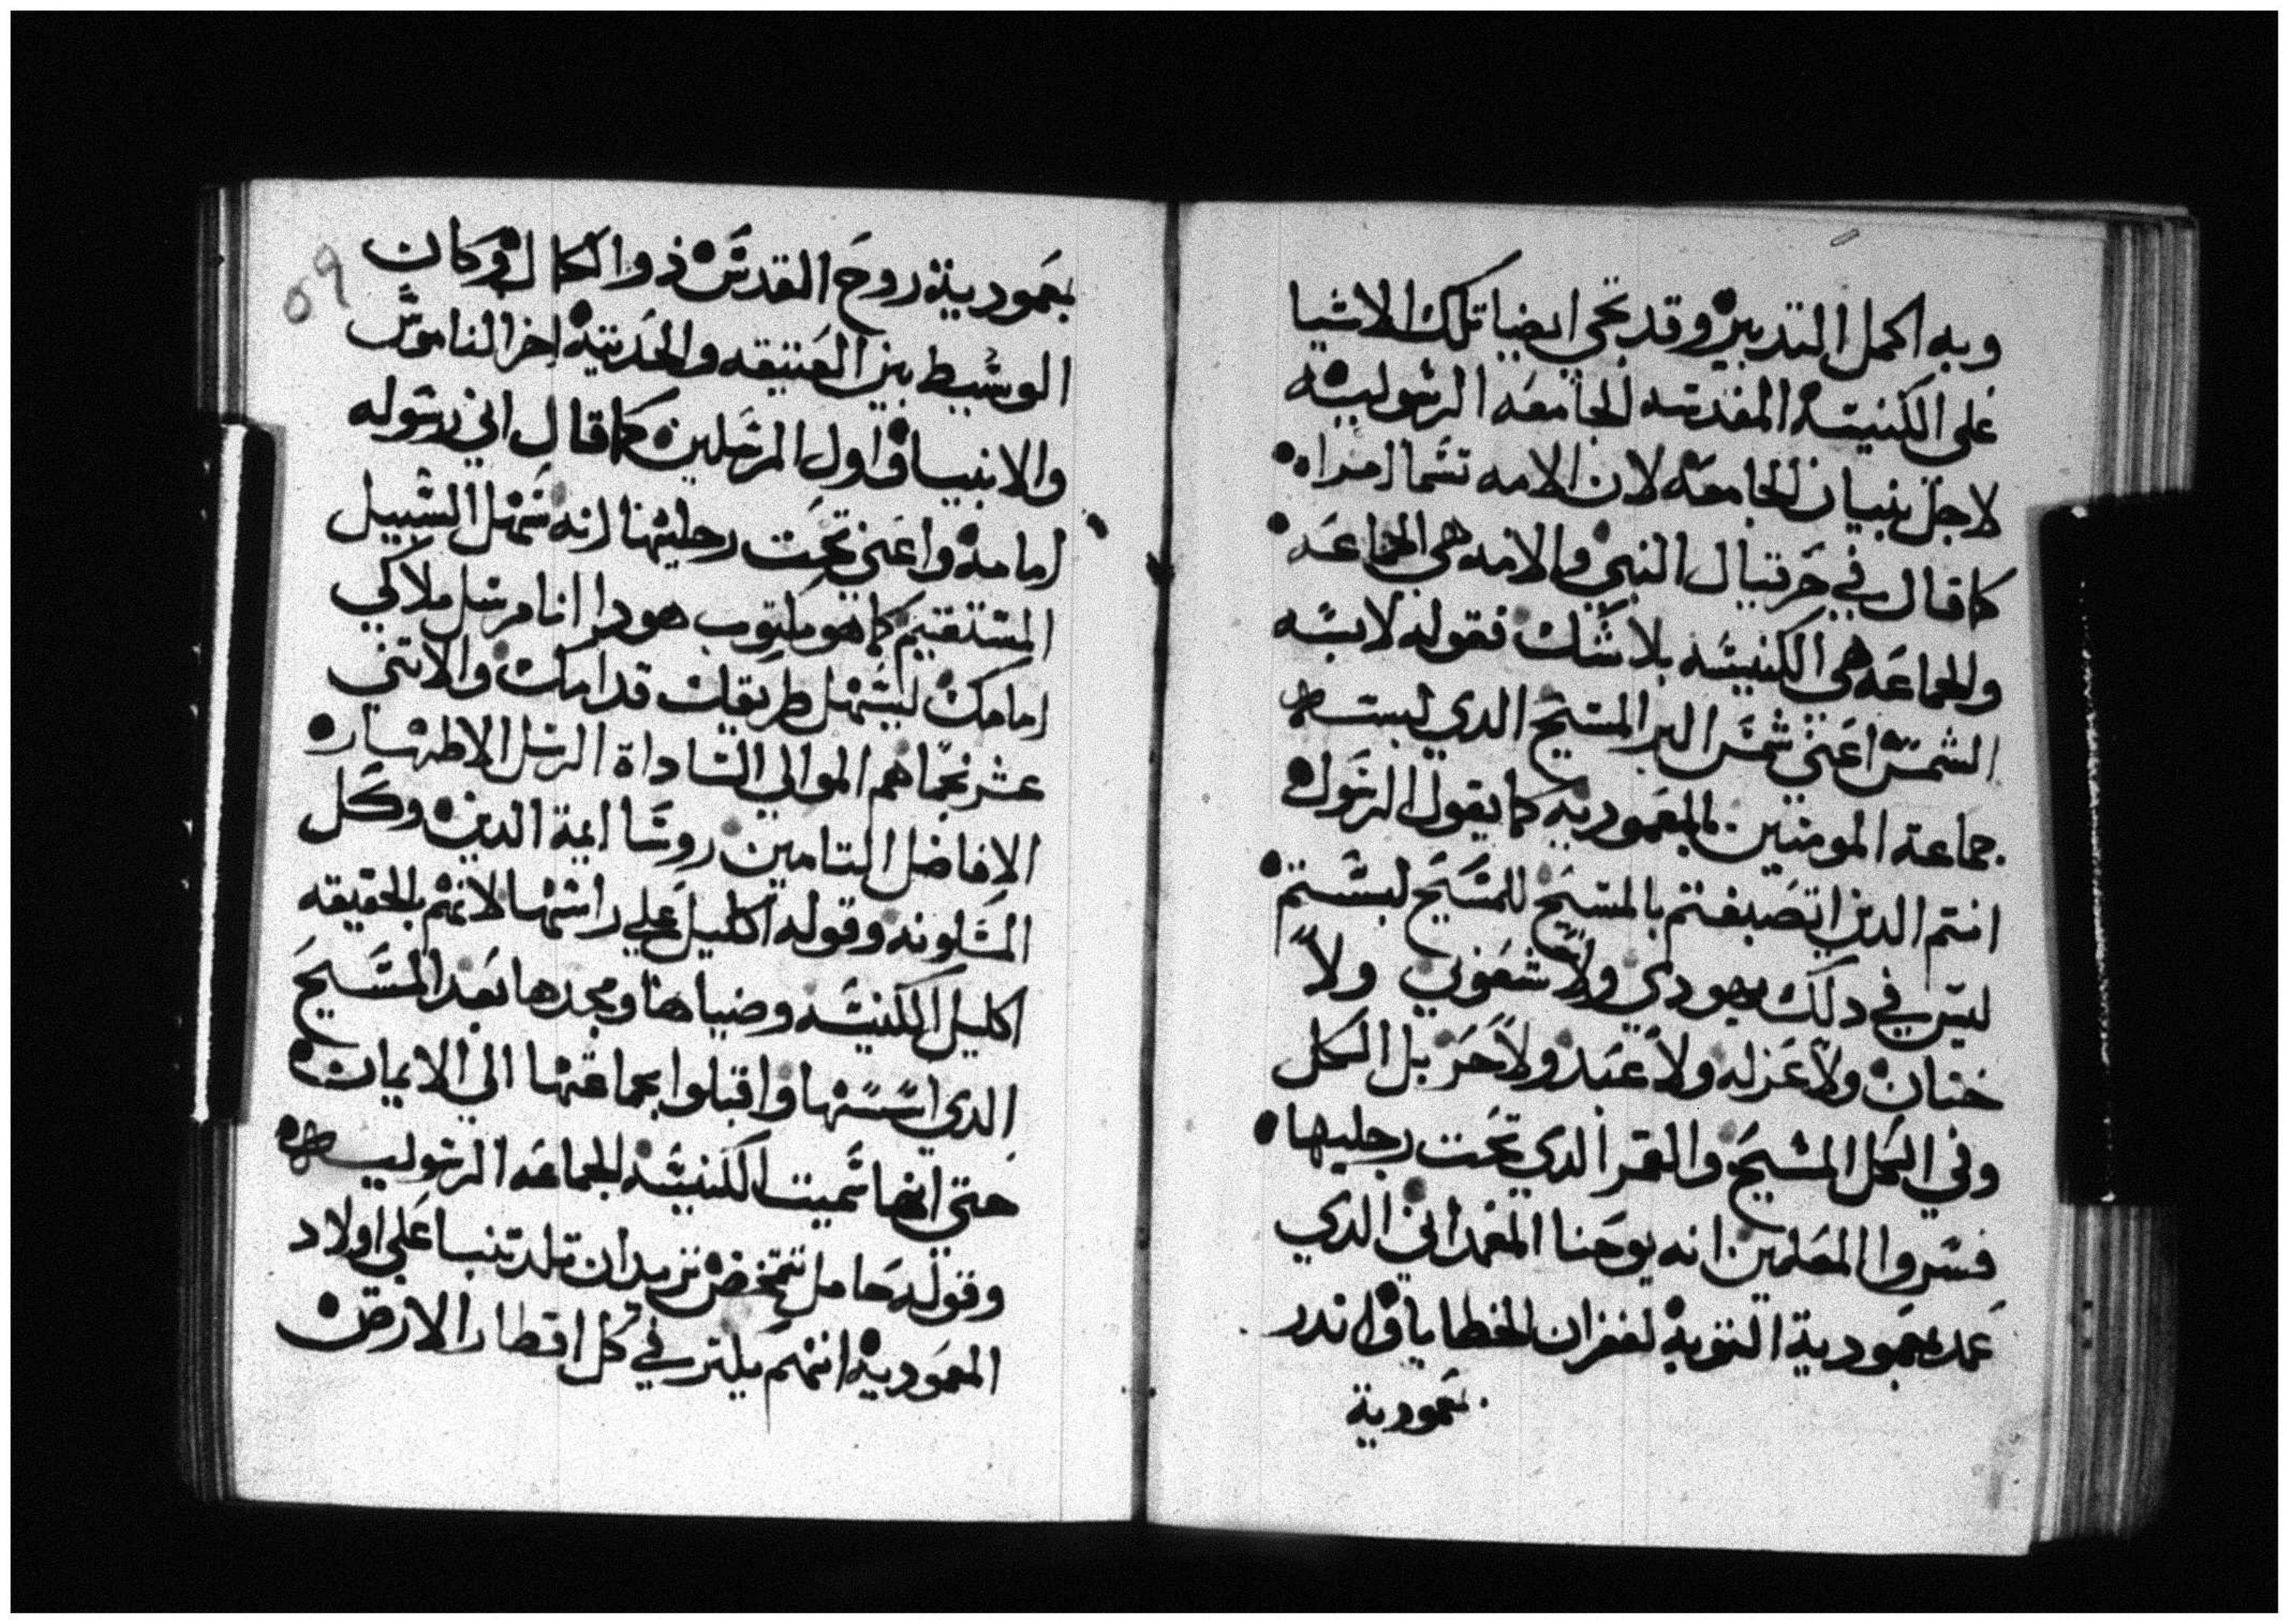 وبه اكمل التدبير وقد تجي ايضا تلك الاشيا
على الكنيسه المقدسه الجامعه الرسوليه
لاجل بنيان الجامعه لان الامه تسما امراه
كما قال في حزقيال النبي والامه هي الجماعه
والجماعه هي الكنيسه بلا شك فقوله لابسه
الشمس اعني شمس البر المسيح الدي لبسته
جماعة المومنين بالمعموديه كما يقول الرسول
انتم الدين اتصبغتم بالمسيح للمسيح لبستم
ليس في دلك يهودي ولا شعوبي ولا
ختان ولا غزله ولا عبد ولا حر بل الكل
وفي الكل المسيح والقمر الدي تحت رجليها
فسروا المعلمين انه يوحنا المعمداني الدي
عمد بمعمودية التوبه لغفران الخطايا واندر
بمعمودية
٥٩
بمعمودية روح القدس ذو الكمال وكان
الوسيط بين العتيقه والحديثه اخر الناموس
والانبيا واول المرسلين كما قال اني رسوله
امامه واعني تحت رجليها انه سهل السبيل
المستقيم كما هو مكتوب هودا انا مرسل ملاكي
امامك ليسهل طريقك قدامك والاتني
عشر نجما هم الموالي الساداة الرسل الاطهار
الافاضل التامين روسا ايمة الدين وكل
المسلونه وقوله اكليل علي راسها لانهم بالحقيقه
اكليل الكنيسه وضياها ومجدها بعد المسيح
الدي اسسها واقبلوا بجماعتها الي الايمان
حتى انها سميت الكنيسه الجماعه الرسوليه
وقوله حامل تتمخض تريد ان تلد تنبا علي اولاد
المعموديه انهم يلتر في كل اقطار الارض